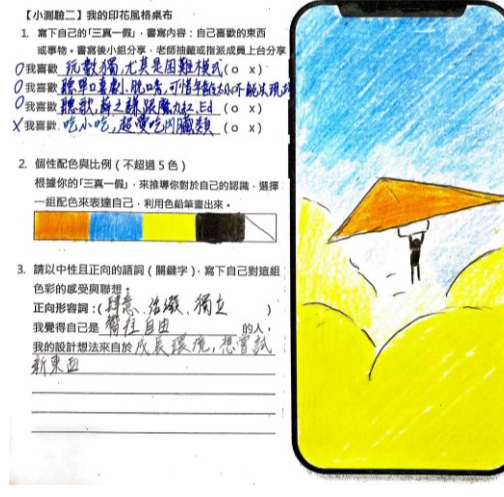 【小測驗二】我的印花風格桌布
1. 寫下自己的「三真一假」，書寫內容：自己喜歡的東西
或事物。書寫後小組分享，老師抽籤或指派成員上台分享
O我喜歡 玩數獨,尤其是困難模式(o x)
O我喜歡 聽單口喜劇、脫口秀,可惜年齡太小不能去現場(o x)
O我喜歡 聽歌,薛之謙跟魔力紅、Ed (o x)
X我喜歡 吃小吃,超愛吃內臟類 (o x)
2. 個性配色與比例（不超過5色）
根據你的「三真一假」，來推導你對於自己的認識，選擇
一組配色來表達自己，利用色鉛筆畫出來。
3. 請以中性且正向的語詞（關鍵字），寫下自己對這組
色彩的感受與聯想。
正向形容詞：(肆意、活潑、獨立 )
我覺得自己是 嚮往自由 的人，
我的設計想法來自於 成長環境,想嘗試
新東西